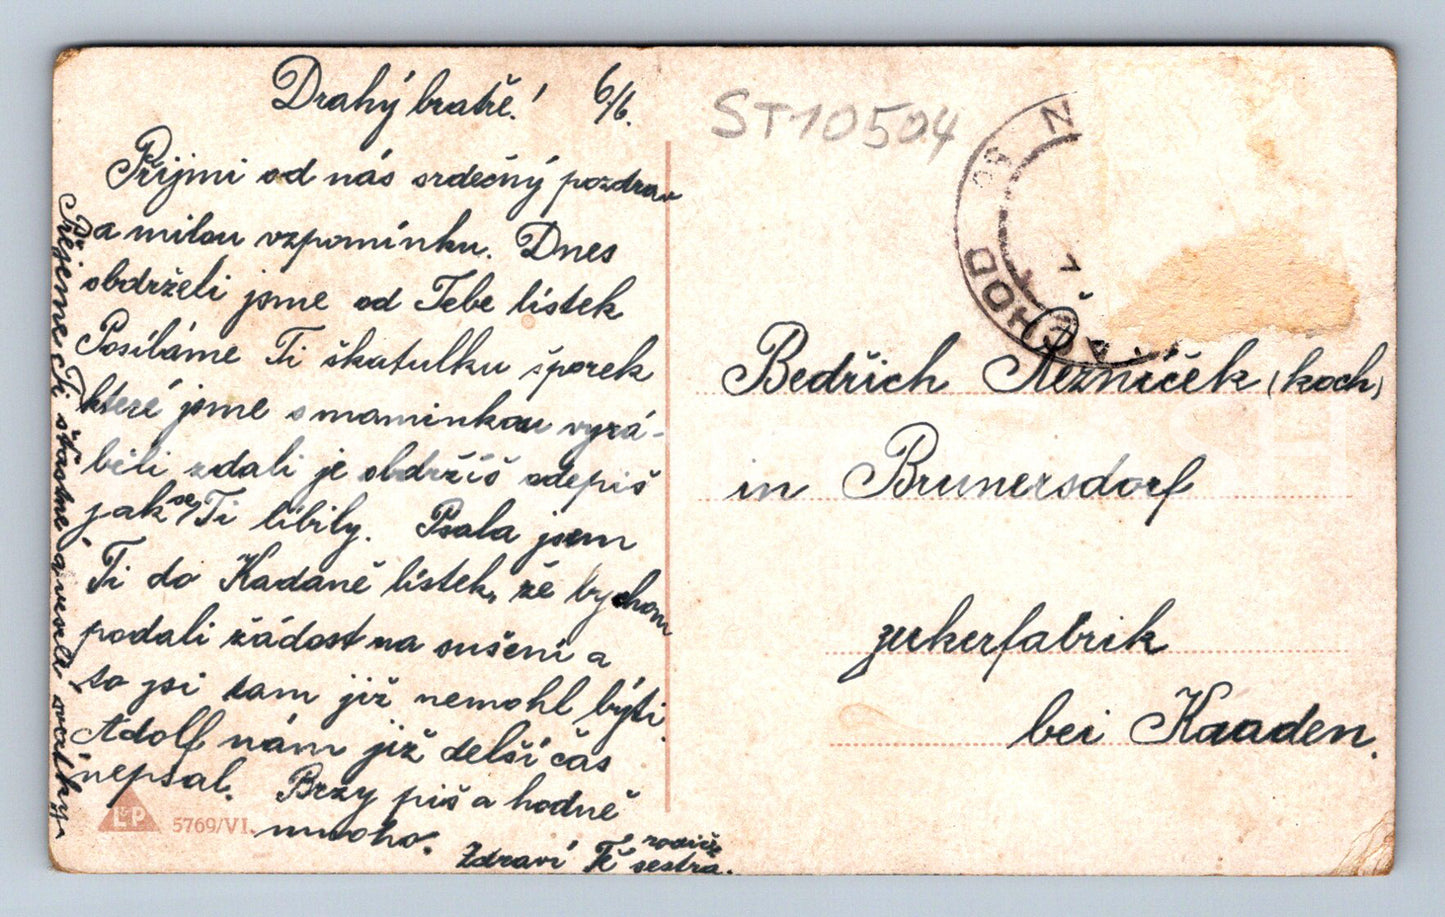 Drahý bratře! 6/6.
Přijmi od nás srdečný pozdrav
a milou vzpomínku. Dnes
obdrželi jsme od Tebe lístek
Posíláme Ti škatulku šporek
které jsme s maminkou vyrá-
běli zdali je obdržíš odepiš
jak se Ti líbily. Psala jsem
Ti do Kadaně lístek, že bychom
podali žádost na sušení a
to jsi tam již nemohl býti.
Adolf nám již delší čas
nepsal. Brzy piš a hodně
mnoho.
Zdraví Tě rodiče
sestra.
Přejeme si Ti šťastné a veselé svátky.
LP 5769/VI.
ST10504
NÁCHOD
Bedřich Řezníček (koch)
in Brunersdorf
zukerfabrik
bei Kaaden.